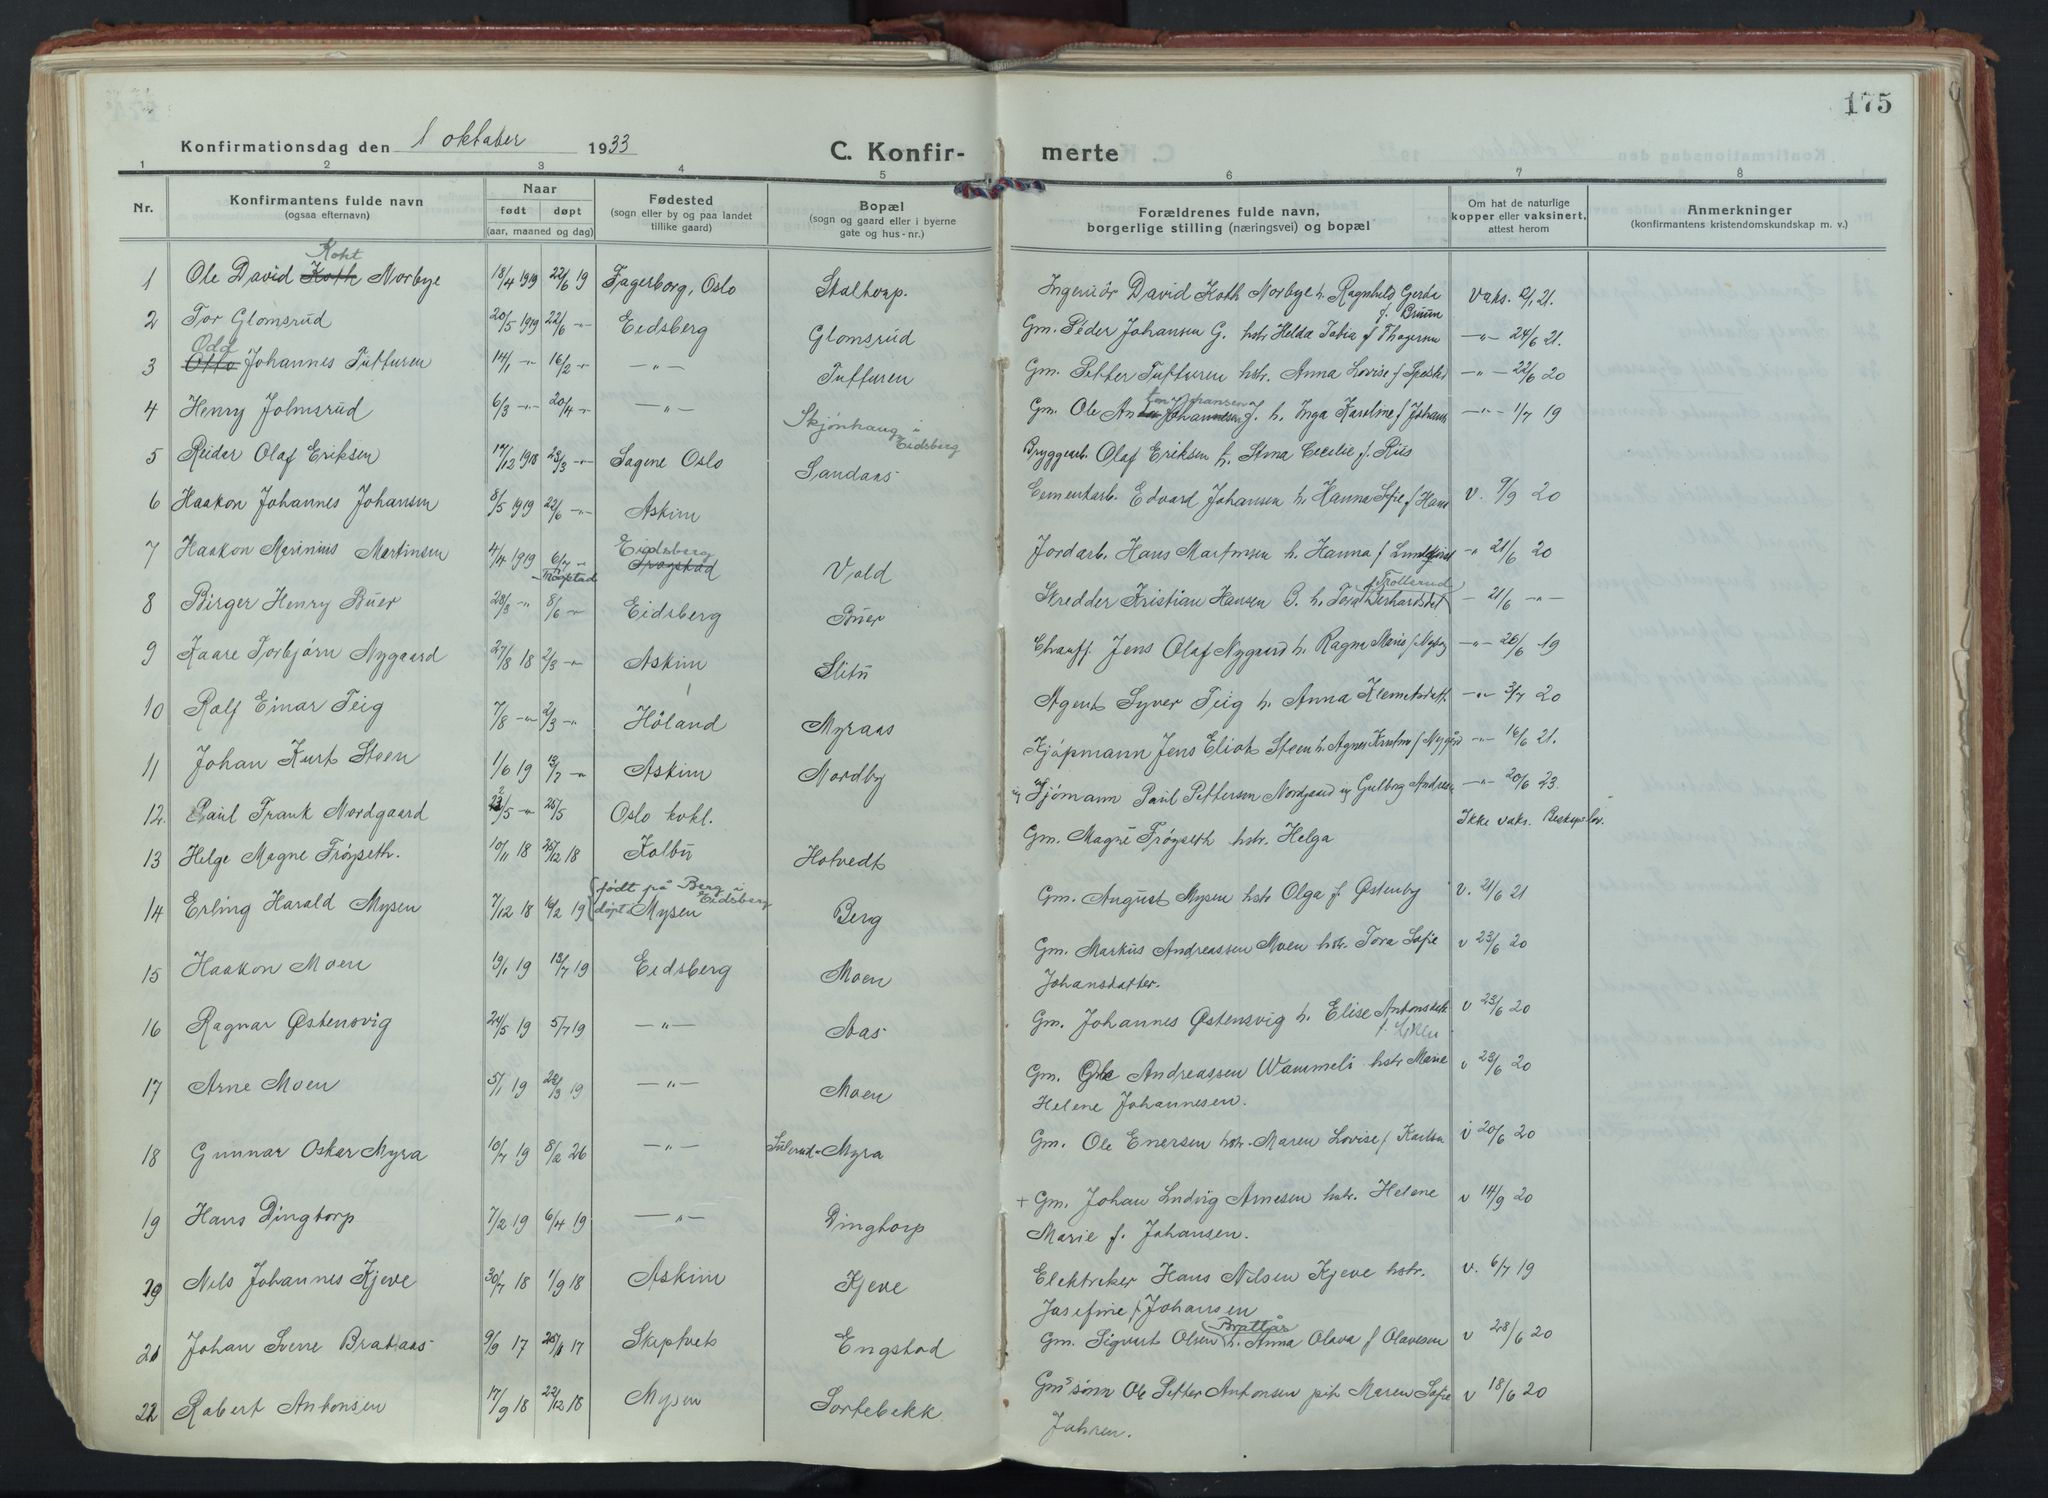 175
Konfirmationsdag den 1 oktober 1933
C. Konfir- merte
1 2 3 4 5 6 7 8
Nr. Konfirmantens fulde navn (ogsaa efternavn) Naar født døpt (aar, maaned og dag) Fødested (sogn eller by og paa landet tillike gaard) Bopæl (sogn og gaard eller i byerne gate og hus-nr.) Forældrenes fulde navn, borgerlige stilling (næringsvei) og bopæl Om hat de naturlige kopper eller vaksinert, attest herom Anmerkninger (konfirmantens kristendomskundskap m. v.)
Koht
1 Ole David Koth Norbye 18/4 1919 22/6 19 Fagerborg, Oslo Staltorp. Ingeniör David Koth Norbye h. Ragnhild Gerda f. Bruun Vaks. 21.
2 Tor Glomsrud 20/5 1919 22/6 -"- Eidsberg Glomsrud Gm. Peder Johansen G. hstr Helda Tobia f Thogersen -"- 24/6 21.
Odd
3 Otto Johannes Tutturen 14/1 -"- 16/2 -"- -"- Tutturen Gm. Petter Tutturen hstr. Anna Lovise f -"- 22/6 20
4 Henry Jolmsrud 6/3 -"- 20/4 -"- -"- Skjønhaug i Eidsberg Gm. Ole h. Inga Karoline f Johans -"- 1/7 19
5 Reidar Olaf Eriksen 17/12 1918 23/3 -"- Sagene Oslo Sandaas Bryggearb. Olaf Eriksen h. Stina Cecilie f. Rus
6 Haakon Johannes Johansen 8/5 1919 22/6 -"- Askim Cementarb. Edvard Johansen h. Hanna Sofie f Hans V. 9/9 20
7 Haakon Marinius Martinsen 4/4 1919 6/7 -"- Trøgstad Eidsberg Trøgstad Vold Jordarb. Hans Martinsen h. Hanna f Lundqvist -"- 21/6 20
8 Birger Henry Buer 23/3 -"- 8/6 -"- Eidsberg Buer Skredder Kristian Hansen B. h. Tora Gerhardsdat f Trollerud - 21/6 -"-
9 Kaare Torbjørn Nygaard 27/8 18 2/3 -"- Askim Slitu Chauff. Jens Olaf Nygaard h. Ragna Marie f Nyby -"- 26/6 19
10 Ralf Einar Teig 7/8 -"- 2/3 -"- Höland Myraas Agent Syver Teig h. Anna Klemetsdatt -"- 3/7 20
11 Johan Kurt Steen 1/6 19 13/7 -"- Askim Nordby Kjøpmann Jens Eliot Steen h. Agnes Kristine f Nygård -"- 16/6 21.
12. Paul Frank Nordgaard 23/5 -"- 25/5 Oslo kokl. ug Sjømann Paul Pettersen Nordgaard ug Gulborg Andresen -"- 20/6 23.
13 Helge Magne Trøyseth. 10/11 18 25/12 18 Kolbu Hotvedt Gm. Magne Trøyseth hstr. Helga Ikke vaks.
14 Erling Harald Mysen 7/12 18 16/2 19 født på Berg i Eidsberg døpt Mysen Berg Gm. August Mysen hstr Olga f. Østenby v. 21/6 21
15 Haakon Moen 19/1 19 13/7 19 Eidsberg Moen Gm. Markus Andreassen Moen hstr. Tora Sofie Johansdatter. v 23/6 20
16 Ragnar Østensvig 24/5 19 5/7 19 -"- Aas Gm. Johannes Østensvig h. Elise Antonsdatt v 23/6 20
17 Arne Moen 5/1 19 23/3 19 -"- Moen Gm. Ole Andreassen Wammeli hstr Marie Helene Johannesen. v 23/6 20
18 Gunnar Oskar Myra 10/7 19 8/2 26 -"- Myra Gm. Ole Enersen hstr. Maren Lovise f Karlsen v 20/6 20
19 Hans Dingtorp 7/2 19 6/4 19 -"- Dingtorp + Gm. Johan Ludvig Arnesen hstr. Helene Marie f. Johansen. v 14/9 20
20 Nils Johannes Kjeve 30/7 18 1/9 18 Askim Kjeve Elektriker Hans Nilsen Kjeve hstr. Josefine f Johansen v. 6/7 19
21 Johan Svene Brataas 9/9 17 17 Skiptvet Engstad Gm. Sigvart Olsen Brattås h. Anna Olava f Olavesen v 28/6 20
22 Robert Antonsen 17/9 18 22/12 18 Mysen Sortebekk Gm's sönn Ole Petter Antonsen pik Maren Sofie Juhren. v 18/6 20